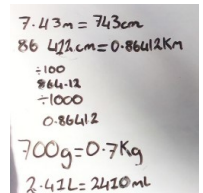 7.43m = 743cm
86 412cm = 0.86412Km
÷100
864.12
÷1000
0.86412
700g = 0.7Kg
2.41L = 2410ml